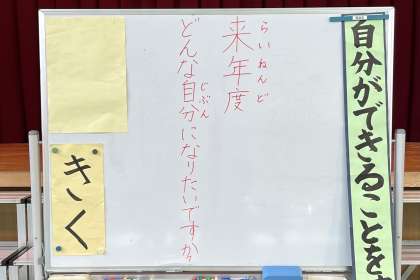 自分ができることを
らいねんど
来年度
じぶん
どんな自分になりたいですか。
きく